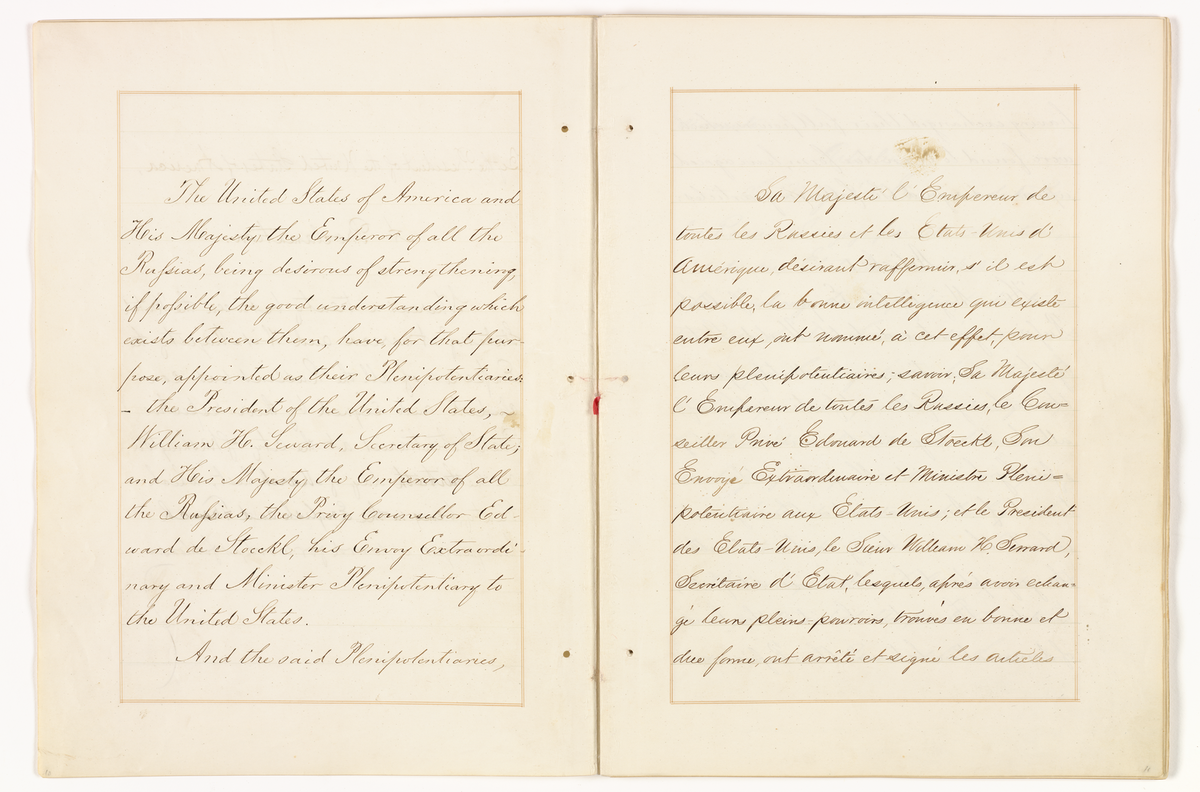 The United States of America and
His Majesty the Emperor of all the
Russias, being desirous of strengthening,
if possible, the good understanding which
exists between them, have, for that pur-
pose, appointed as their Plenipotentiaries:
– the President of the United States, ~
William H. Seward, Secretary of State;
and His Majesty the Emperor of all
the Russias, the Privy Counsellor Ed-
ward de Stoeckl, his Envoy Extraordi-
nary and Minister Plenipotentiary to
the United States.
And the said Plenipotentiaries,
Sa Majesté l'Empereur de
toutes les Russies et les Etats-Unis d'
Amérique, désirant raffermir, s'il est
possible, la bonne intelligence qui existe
entre eux, ont nommé, à cet effet, pour
leurs plenipotentiaires; savoir, Sa Majesté
l'Empereur de toutes les Russies, le Con=
seiller Privé Edouard de Stoeckl, Son
Envoyé Extraordinaire et Ministre Pleni=
potentiaire aux Etats-Unis; et le President
des Etats-Unis, le Sieur William H. Seward,
Secrétaire d'Etat, lesquels, aprés avoir echan=
gé leurs pleins-pouvoirs, trouvés en bonne et
due forme, ont arrêté et signé les articles